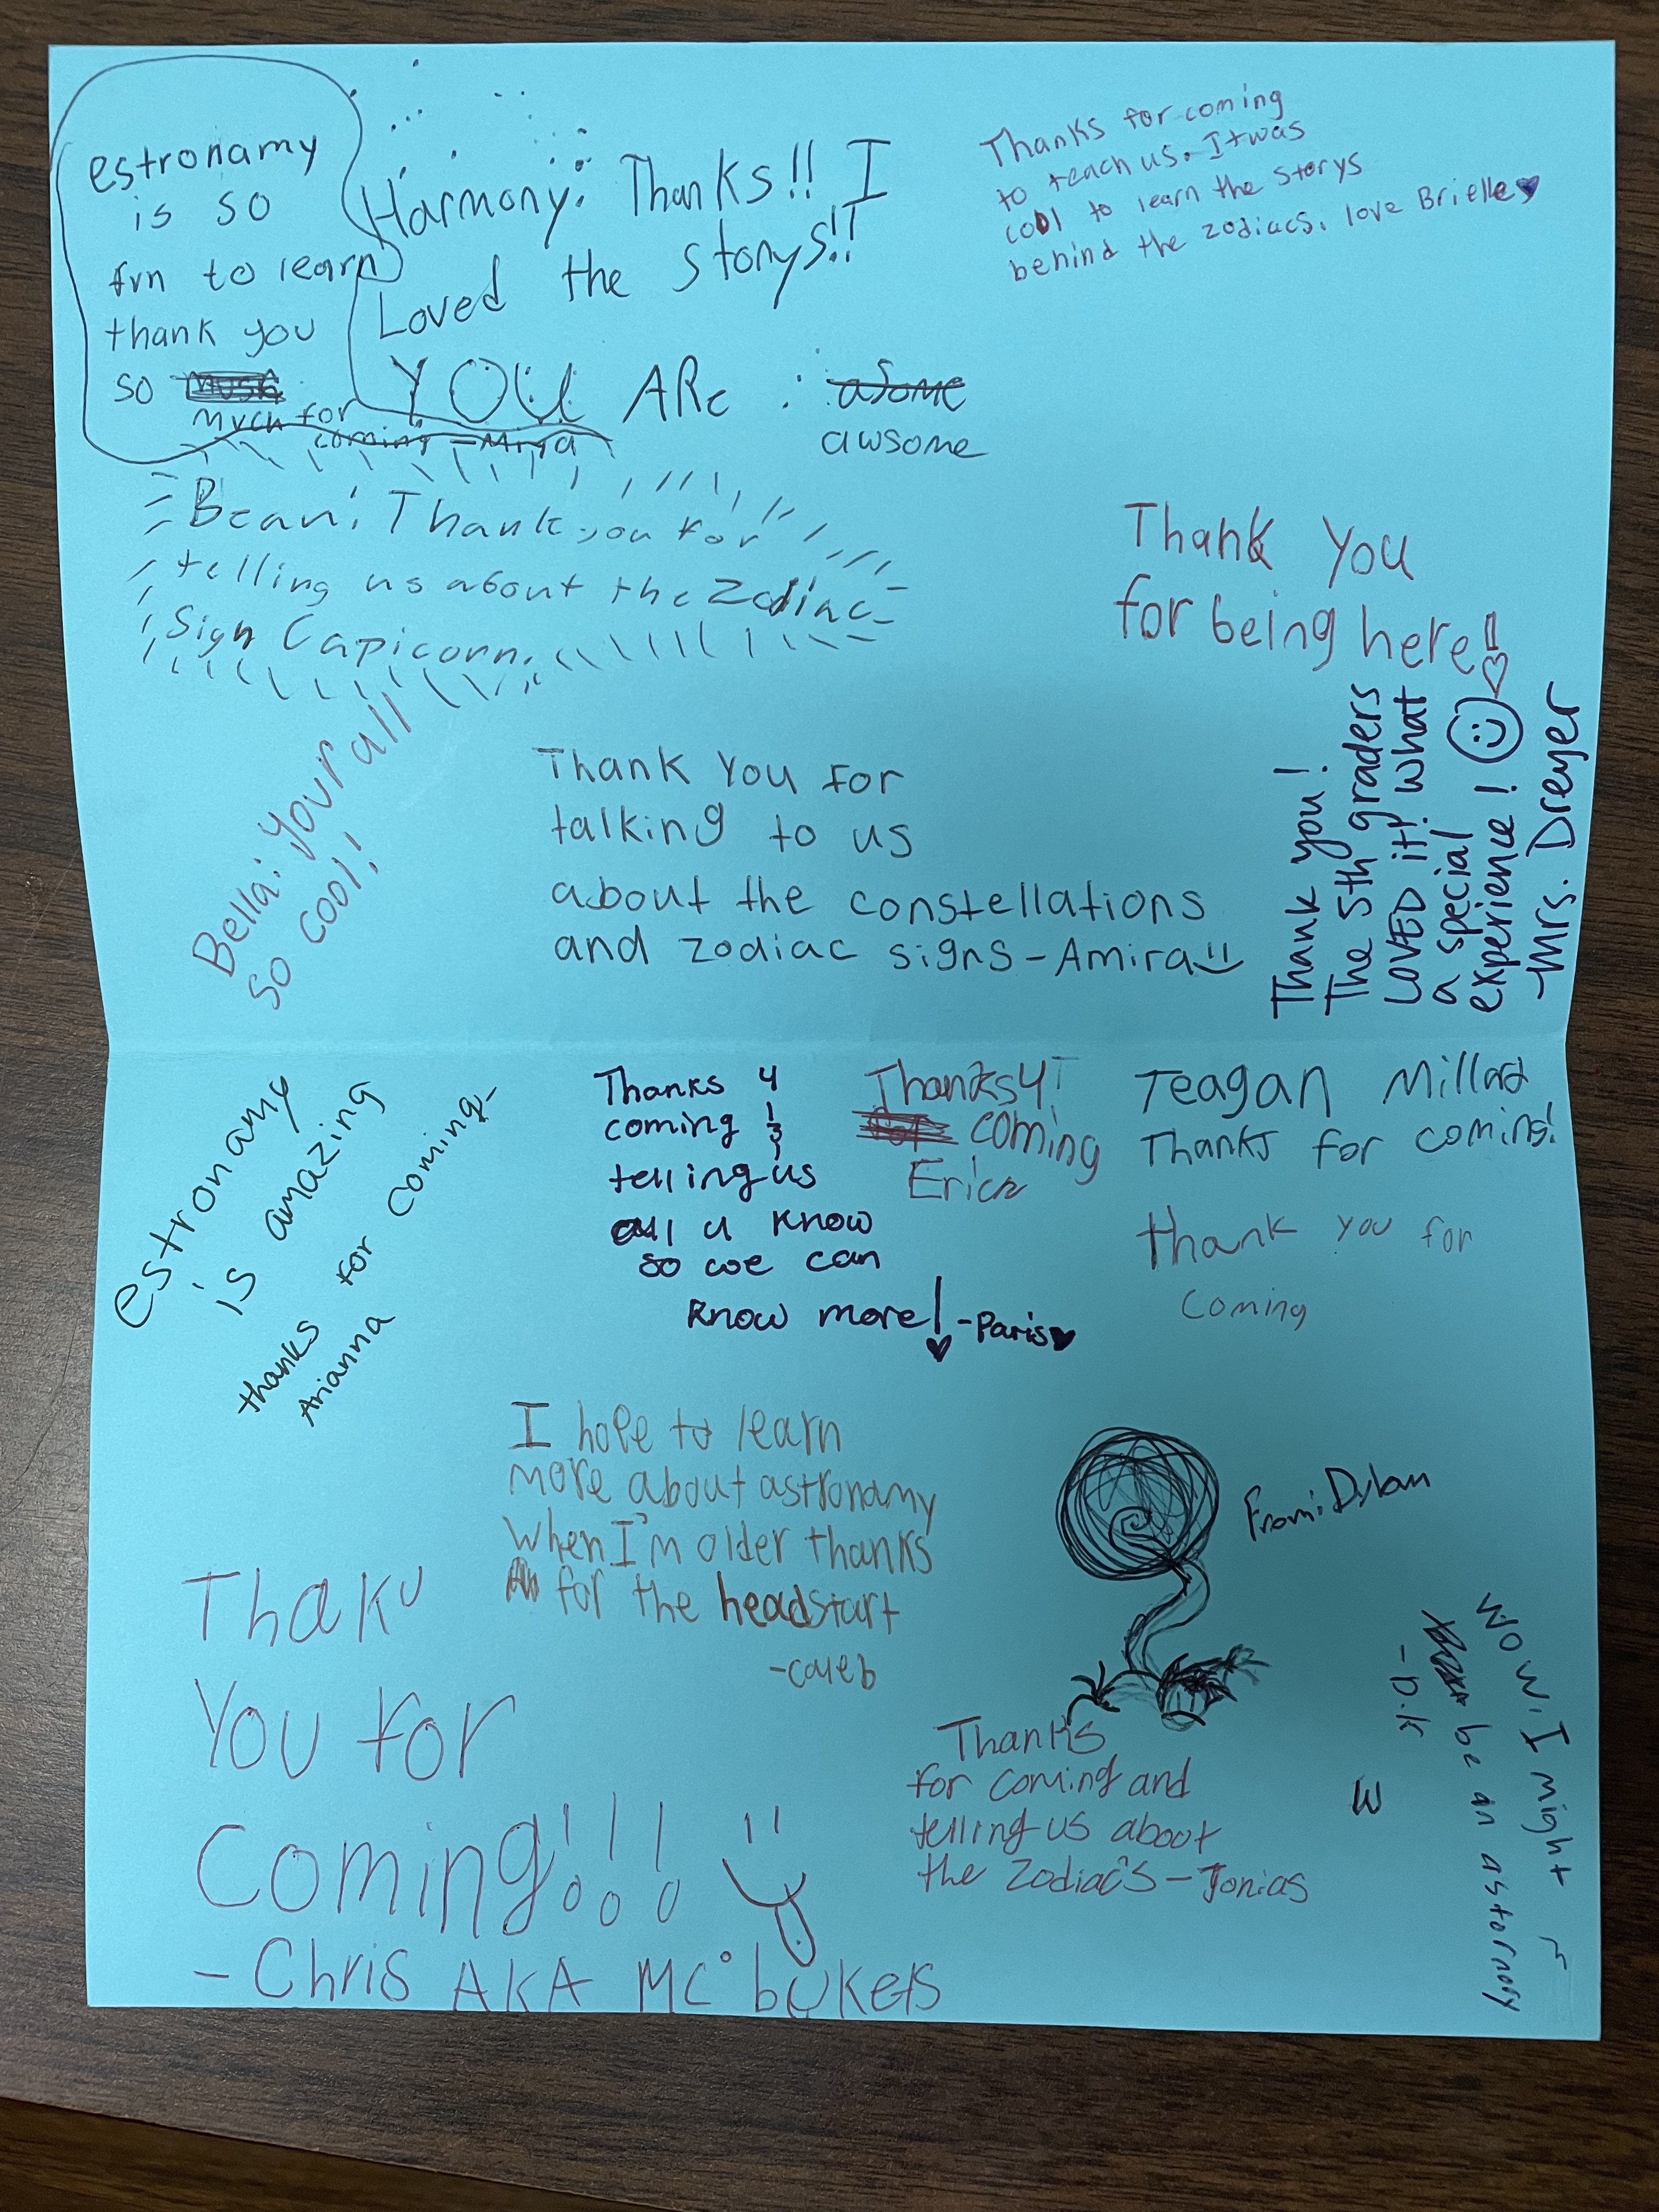 estronamy
is so
fun to learn
thank you
so
much for
coming -Mira
Harmony: Thanks!! I
Loved the storys!!
YOU ARe : asome
awsome
Thanks for coming
to teach us. It was
cool to learn the storys
behind the zodiacs. love Brielle
Bean: Thank you for
telling us about the Zodiac
Sign Capicorn.
Thank You
for being here!
Bella: Your all
so cool!
Thank You for
talking to us
about the constellations
and zodiac signs-Amira
Thank you!
The 5th graders
LOVED it! What
a special
experience!
-Mrs. Dreyer
estronamy
is amazing
thanks for coming-
Arianna
Thanks 4
coming &
telling us
all u know
so we can
know more! -Paris
Thanks 4
coming
Erick
Teagan Millard
Thanks for coming!
thank you for
coming
I hope to learn
more about astronamy
when I'm older thanks
for the headstart
-caleb
From: Dylan
Thak
You for
Coming!!!
-Chris AKA MC bukets
Thanks
for coming and
telling us about
the Zodiac's-Jonias
Wow, I might
be an astornomy
-a.k
W